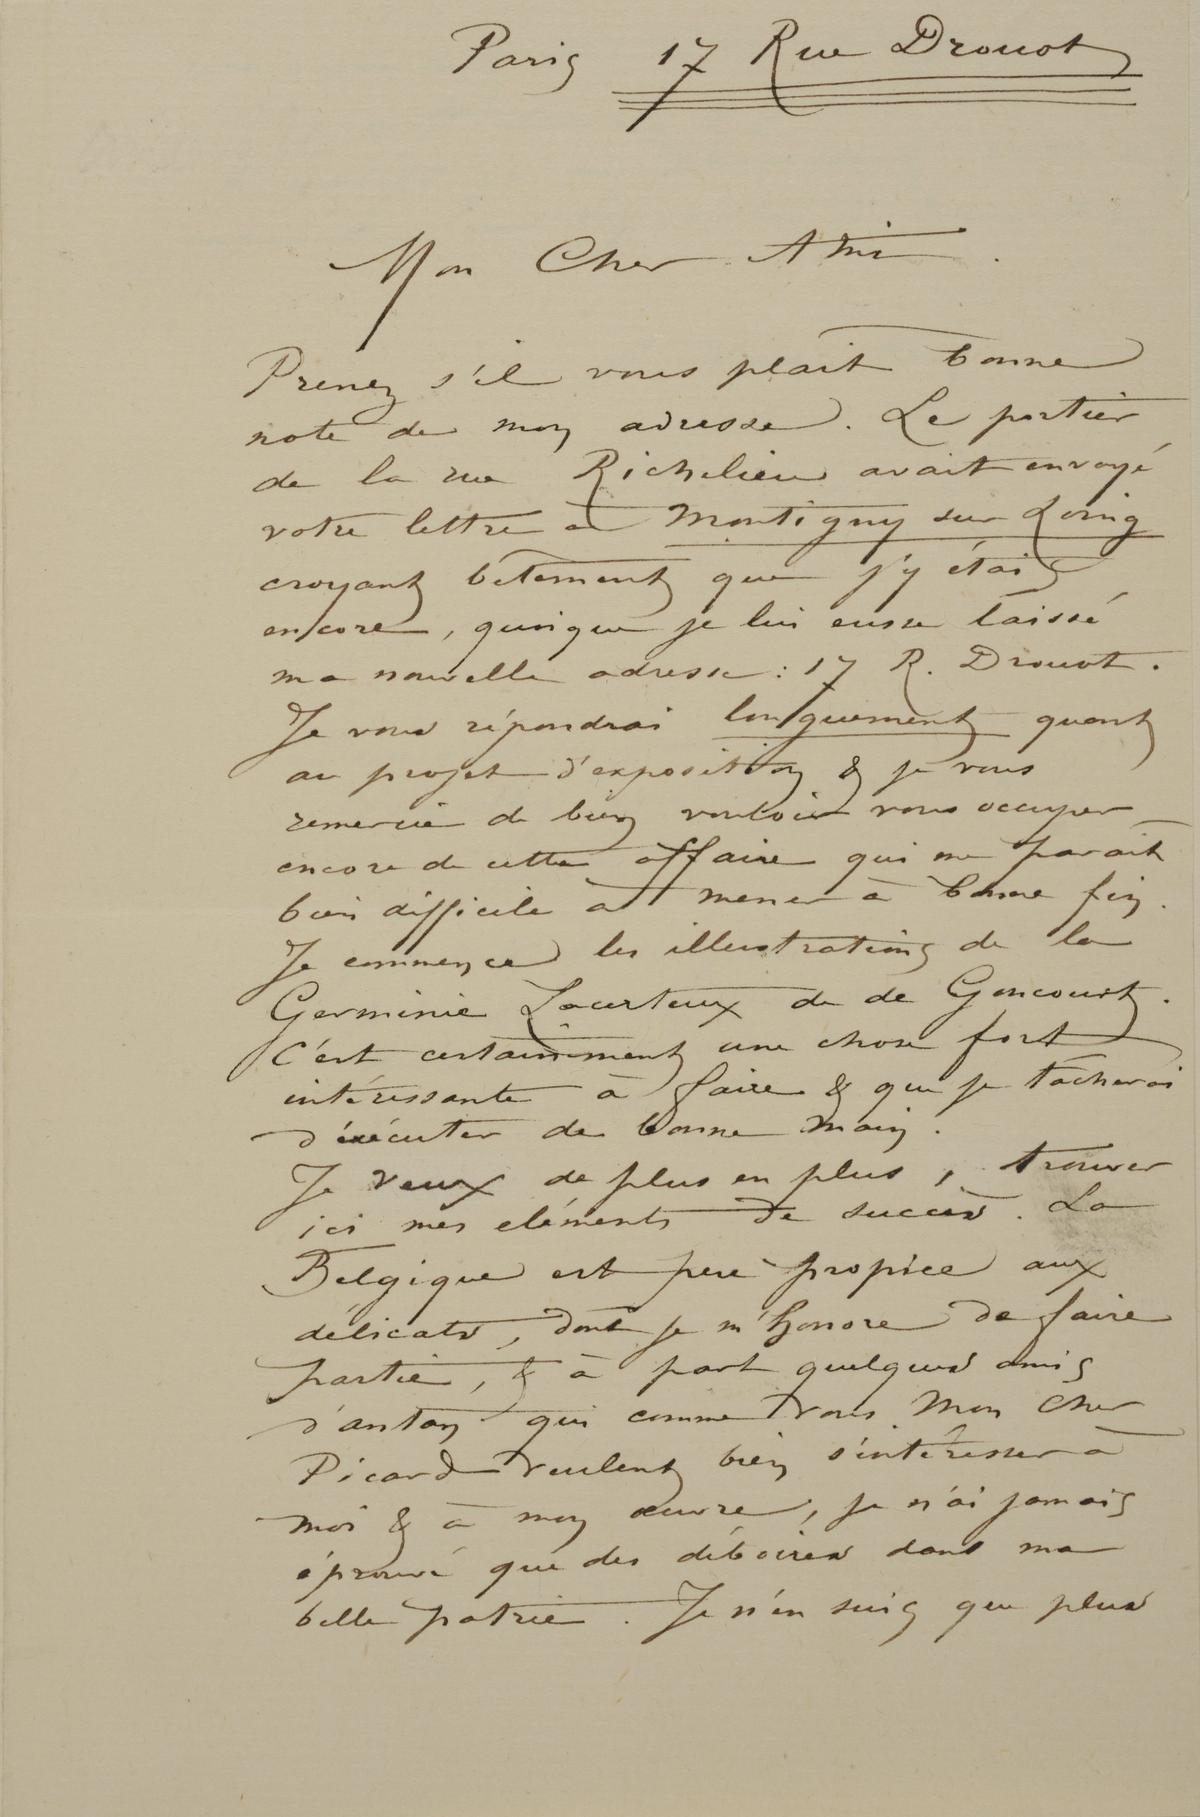 Paris 17 Rue Drouot
Mon Cher Ami.
Prenez s'il vous plait bonne
note de mon adresse. Le portier
de la rue Richelieu avait envoyé
votre lettre à Montigny sur Loing
croyant bêtement que j'y étais
encore, quoique je lui eusse laissé
ma nouvelle adresse : 17 R. Drouot.
Je vous répondrai longuement quant
au projet d'exposition & je vous
remercie de bien vouloir vous occuper
encore de cette affaire qui me parait
bien difficile à mener à bonne fin.
Je commence les illustrations de la
Germinie Lacerteux de de Goncourt.
C'est certainement une chose fort
intéressante à faire & que je tâcherai
d'exécuter de bonne main.
Je veux de plus en plus, trouver
ici mes eléments de succès. La
Belgique est peu propice aux
délicats, dont je m'honore de faire
partie, & à part quelques amis
d'antan qui comme vous Mon Cher
Picard veulent bien s'intéresser à
moi & à mon œuvre, je n'ai jamais
éprouvé que des déboires dans ma
belle patrie. Je n'en suis que plus